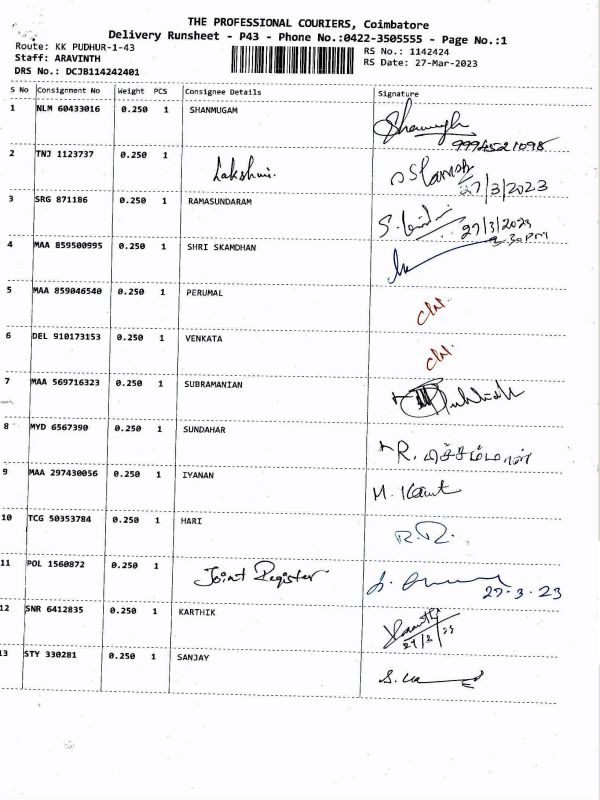 THE PROFESSIONAL COURIERS, Coimbatore
Delivery Runsheet - P43 - Phone No.:0422-3505555 - Page No.:1
Route: KK PUDHUR-1-43
Staff: ARAVINTH
DRS No.: DCJB114242401
RS No.: 1142424
RS Date: 27-Mar-2023
S No Consignment No Weight PCS Consignee Details Signature
1 NLM 60433016 0.250 1 SHANMUGAM
9994521098
2 TNJ 1123737 0.250 1 Lakshmi.
27/3/2023
3 SRG 871186 0.250 1 RAMASUNDARAM
27/3/2023
3.30PM
4 MAA 859500995 0.250 1 SHRI SKAMDHAN
5 MAA 859046540 0.250 1 PERUMAL
6 DEL 910173153 0.250 1 VENKATA
7 MAA 569716323 0.250 1 SUBRAMANIAN
8 MYD 6567390 0.250 1 SUNDAHAR
R.
9 MAA 297430056 0.250 1 IYANAN
M. Kant
10 TCG 50353784 0.250 1 HARI
R.R.
11 POL 1560872 0.250 1 Joint Register
27-3-23
12 SNR 6412835 0.250 1 KARTHIK
27/3/23
13 STY 330281 0.250 1 SANJAY